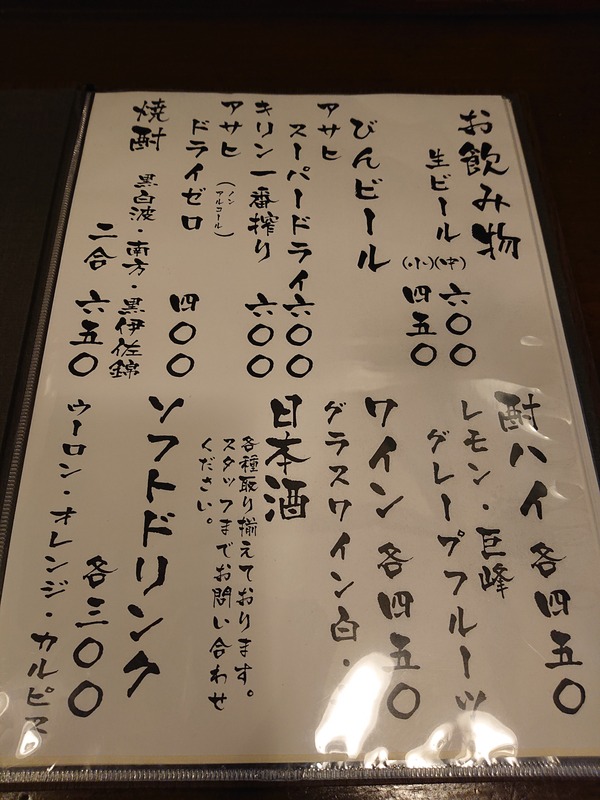 お飲み物
生ビール (中) 六〇〇
(小) 四五〇
びんビール
アサヒ
スーパードライ 六〇〇
キリン一番搾り 六〇〇
アサヒ
ドライゼロ (ノンアルコール) 四〇〇
焼酎 黒白波・南方・黒伊佐錦
二合 六五〇
酎ハイ 各四五〇
レモン・巨峰
グレープフルーツ
ワイン 各四五〇
グラスワイン 白・
日本酒
各種取り揃えております。
スタッフまでお問い合わせ
ください。
ソフトドリンク
各三〇〇
ウーロン・オレンジ・カルピス